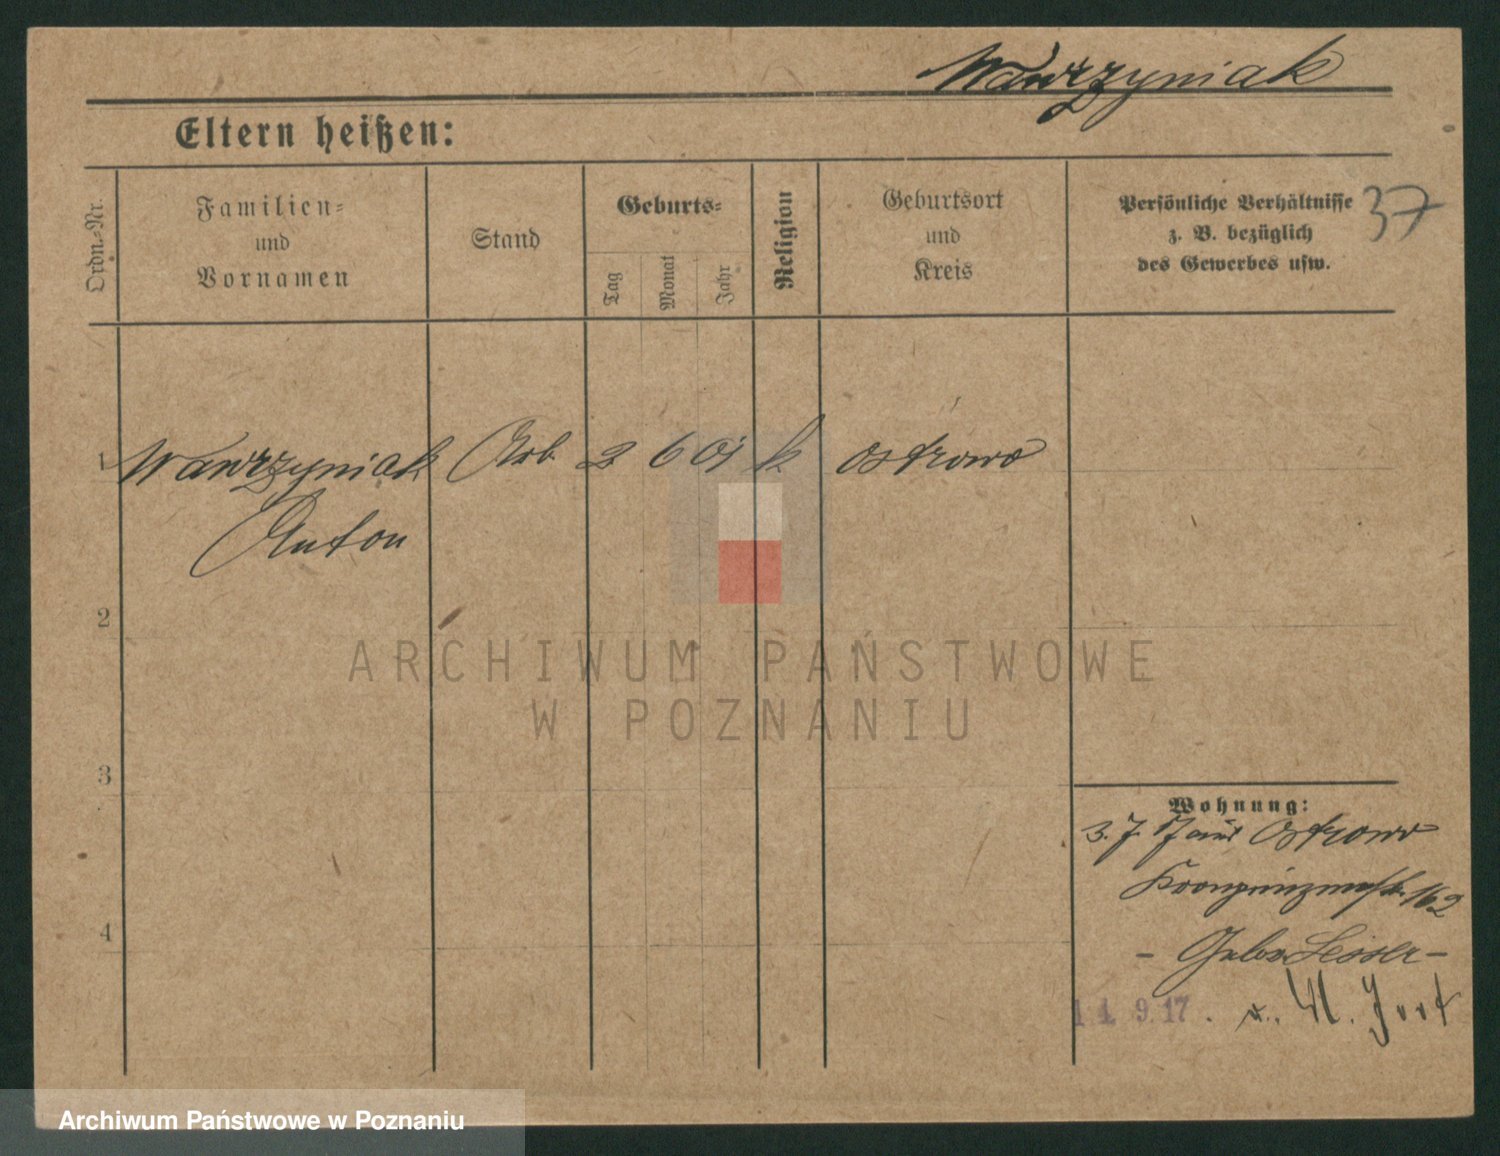 Wawrzyniak
Eltern heißen:
Ordn.-Nr.
Familien-
und
Vornamen
Stand
Geburts-
Tag
Monat
Jahr
Religion
Geburtsort
und
Kreis
Persönliche Verhältnisse
z. B. bezüglich
des Gewerbes usw.
37
1 Wawrzyniak Arb. 2 6 01 k Ostrowo
Anton
2
3
4
Wohnung:
3. 7. 17 aus Ostrowo
Kronprinzenstr. 162
- Gebr. Lesser -
14. 9. 17.
ARCHIWUM PAŃSTWOWE
W POZNANIU
Archiwum Państwowe w Poznaniu